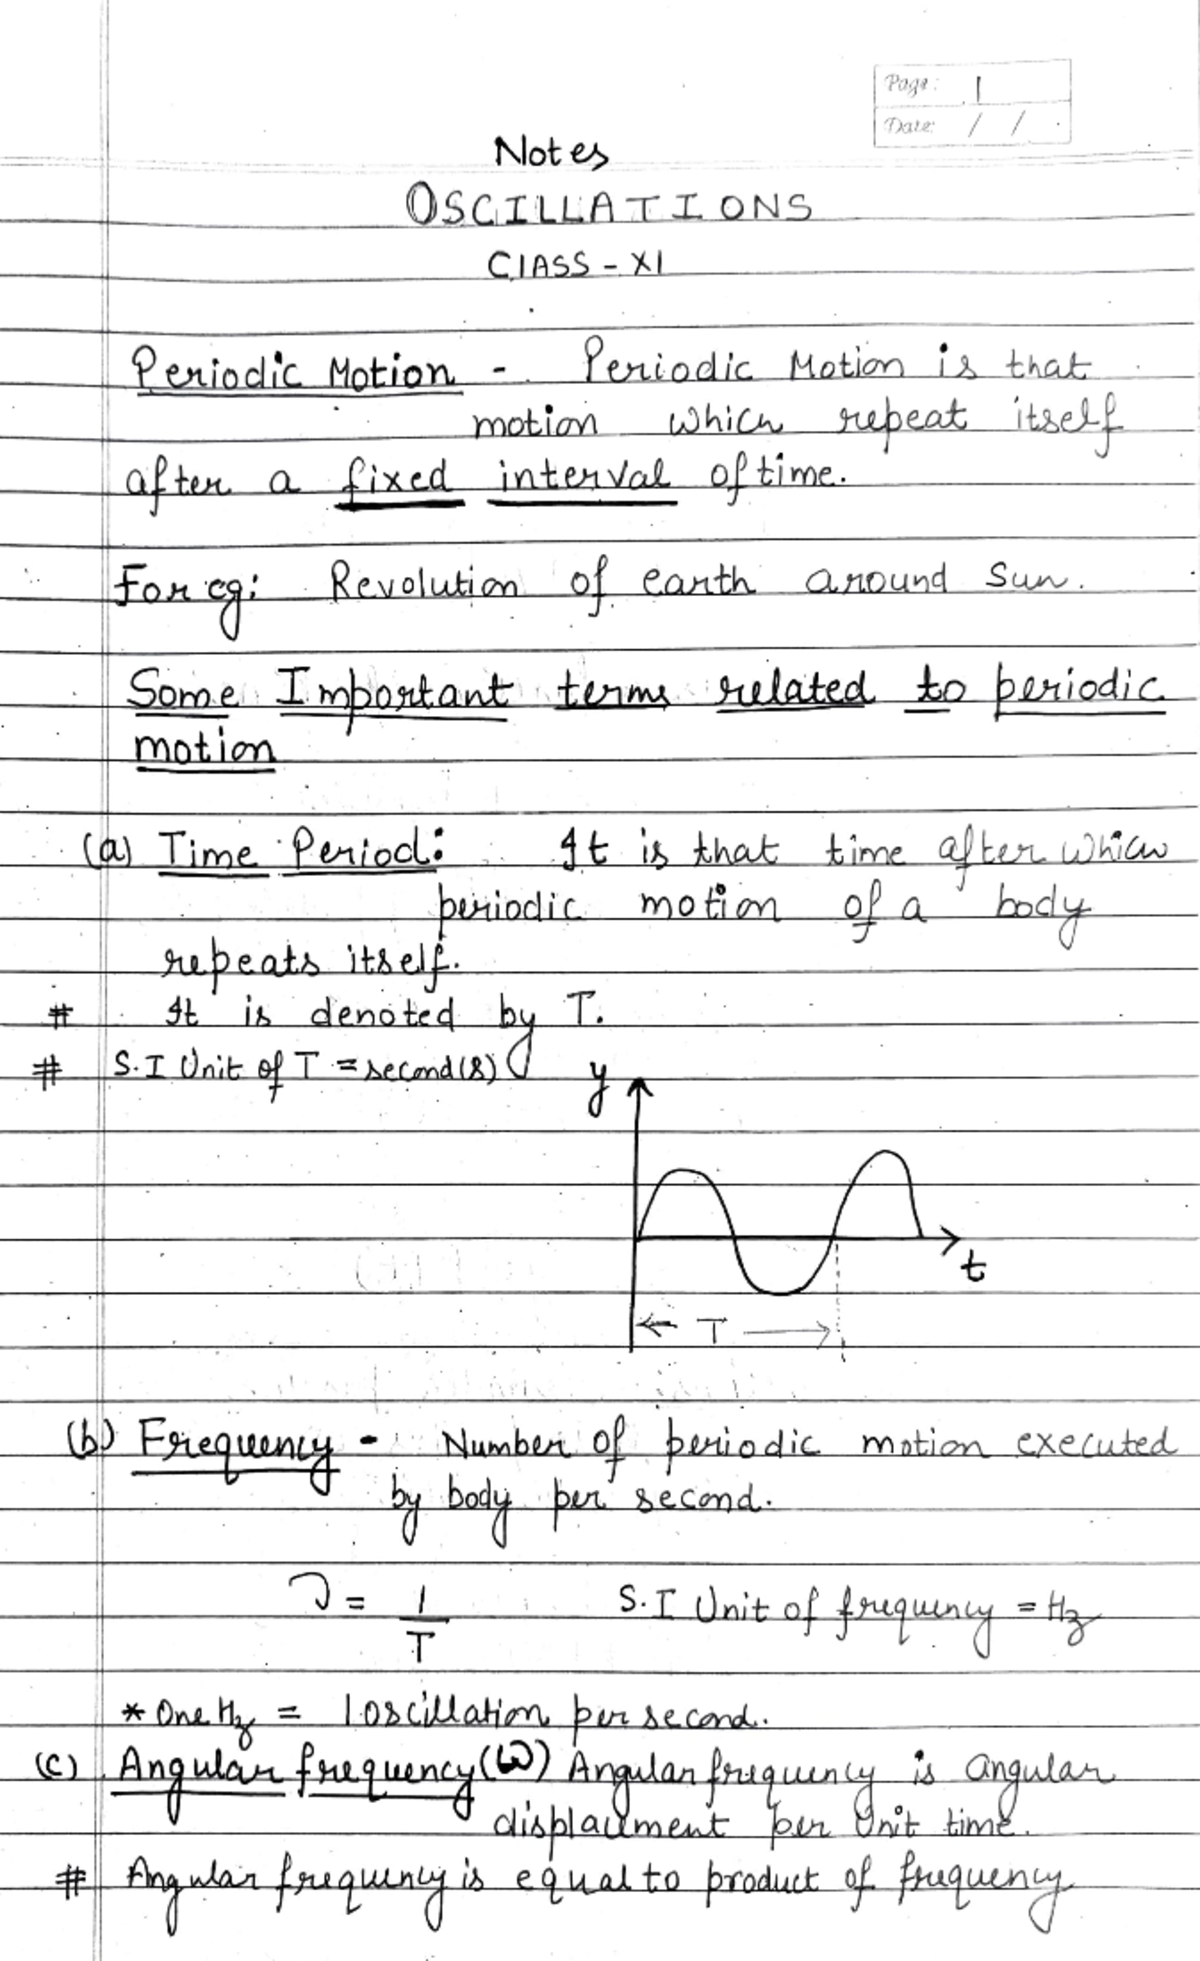 Page: 1
Date: / /
Notes
OSCILLATIONS
ClASS - XI
Periodic Motion - Periodic Motion is that
motion which repeat itself
after a fixed interval of time.
For eg: Revolution of earth around Sun.
Some Important terms related to periodic
motion
(a) Time Period: It is that time after which
periodic motion of a body
repeats itself.
# It is denoted by T.
# S.I Unit of T = second(s)
y
t
T
(b) Frequency - Number of periodic motion executed
by body per second.
ν = 1/T S.I Unit of frequency = Hz
* One Hz = 1 oscillation per second.
(c) Angular frequency (ω) Angular frequency is angular
displacement per Unit time.
# Angular frequency is equal to product of frequency